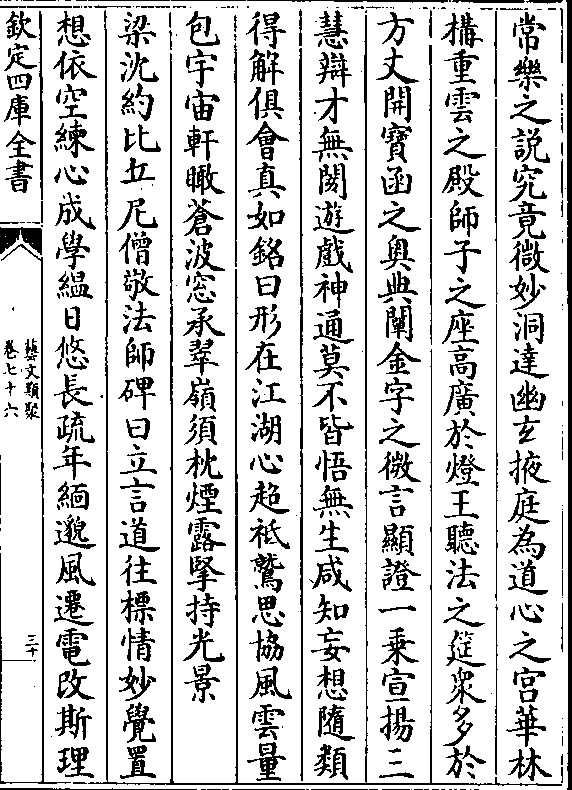 常樂之説究竟微妙洞達幽𤣥掖庭為道心之宫華林
構重雲之殿師子之座高廣於燈王聽法之筵衆多於
方丈開寶函之奥典闡金字之微言顯證一乗宣揚三
慧辯才無閡遊戲神通莫不皆悟無生咸知妄想隨類
得解俱會真如銘曰形在江湖心超祗鷲思協風雲量
包宇宙軒瞰蒼波窓承翠嶺須枕煙露擥持光景
梁沈約比丘尼僧敬法師碑曰立言道往標情妙覺置
想依空練心成學緼日悠長疏年緬邈風遷電改斯理
欽定四庫全書
藝文類聚
卷七十六
三十